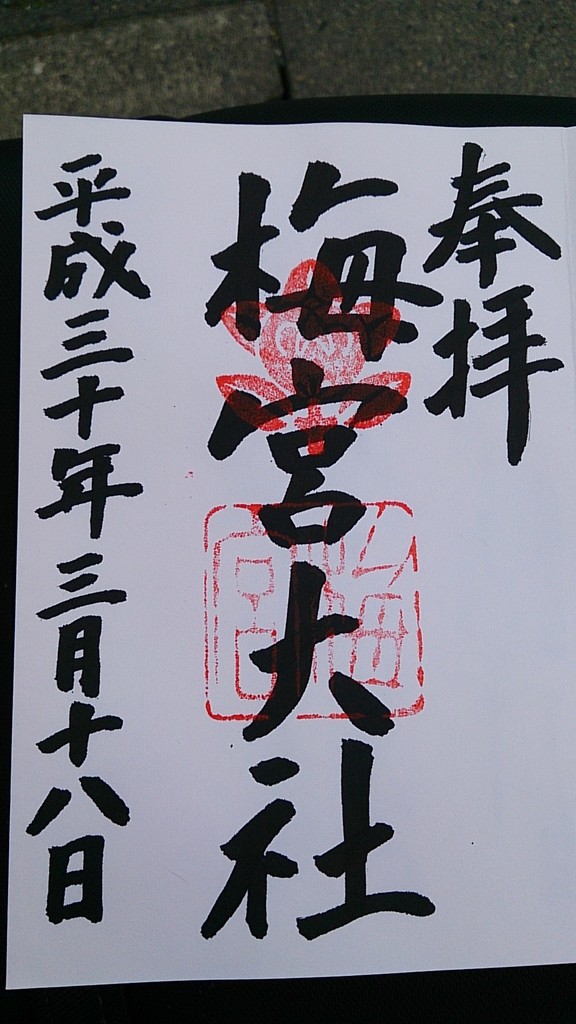 奉拝
梅宮大社
平成三十年三月十八日